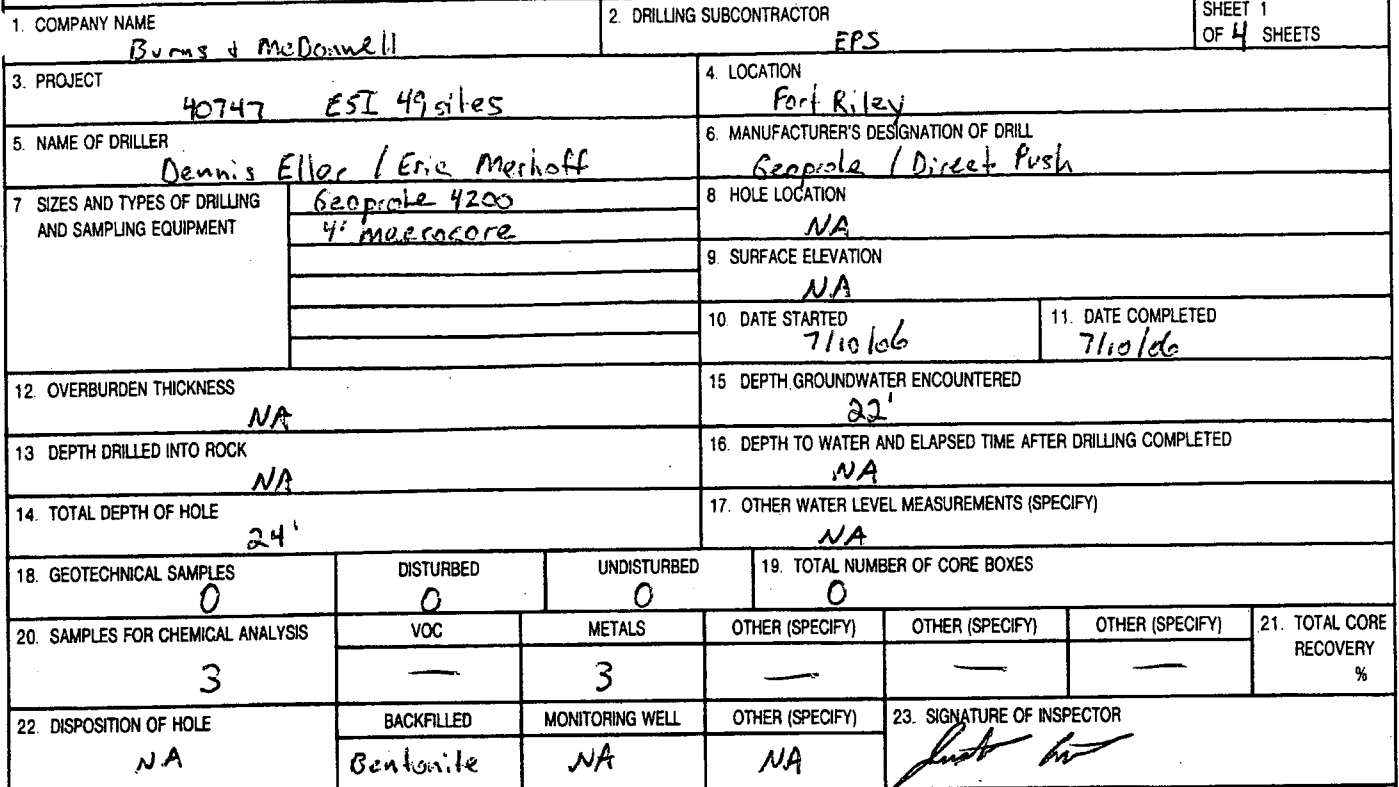 1. COMPANY NAME
Burns & McDonnell
2. DRILLING SUBCONTRACTOR
EPS
SHEET 1
OF 4 SHEETS
3. PROJECT
40747 ESI 49 sites
4. LOCATION
Fort Riley
5. NAME OF DRILLER
Dennis Eller / Eric Merhoff
6. MANUFACTURER'S DESIGNATION OF DRILL
Geoprobe / Direct Push
7 SIZES AND TYPES OF DRILLING
AND SAMPLING EQUIPMENT
Geoprobe 4200
4' macrocore
8 HOLE LOCATION
NA
9. SURFACE ELEVATION
NA
10. DATE STARTED
7/10/06
11. DATE COMPLETED
7/10/06
12. OVERBURDEN THICKNESS
NA
15 DEPTH GROUNDWATER ENCOUNTERED
22'
13 DEPTH DRILLED INTO ROCK
NA
16. DEPTH TO WATER AND ELAPSED TIME AFTER DRILLING COMPLETED
NA
14. TOTAL DEPTH OF HOLE
24'
17. OTHER WATER LEVEL MEASUREMENTS (SPECIFY)
NA
18. GEOTECHNICAL SAMPLES
0
DISTURBED
0
UNDISTURBED
0
19. TOTAL NUMBER OF CORE BOXES
0
20. SAMPLES FOR CHEMICAL ANALYSIS
3
VOC
—
METALS
3
OTHER (SPECIFY)
—
OTHER (SPECIFY)
—
OTHER (SPECIFY)
—
21. TOTAL CORE
RECOVERY
%
22. DISPOSITION OF HOLE
NA
BACKFILLED
Bentonite
MONITORING WELL
NA
OTHER (SPECIFY)
NA
23. SIGNATURE OF INSPECTOR